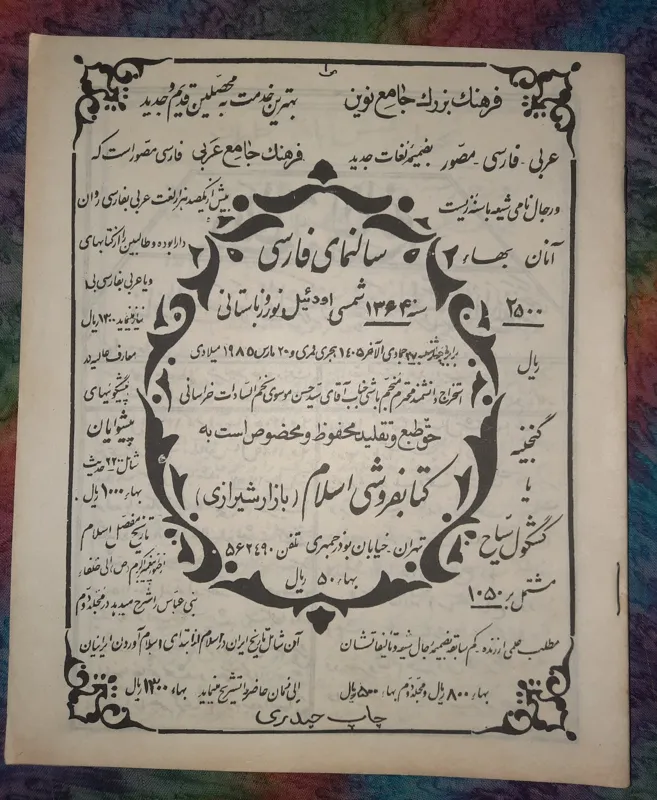 فرهنگ بزرگ جامع نوین
بهترین خدمت به محصلین قدیم و جدید
عربی - فارسی - مصوّر بضمیمه لغات جدید
فرهنگ جامع عربی فارسی مصوّر است که
و رجال نامی شیعه با سنه زیست
بیش از یکصد هزار لغت عربی بفارسی و آن
آنان بهاء ۲
دارا بوده و طالبین را از کتابهای
۲۵۰۰
و یا عربی بفارسی بی
ریال
نیاز مینماید ۱۳۰۰ ریال
معارف عالیه در
پیشگوییهای
پیشوایان
شامل ۲۲ حدیث
بهاء ۱۰۰۰ ریال .
سالنمای فارسی
سنه ۱۳۶۴ شمسی اودئیل نوروز باستانی
۲۷ جمادی الآخر ۱۴۰۵ هجری قمری و ۲۰ مارس ۱۹۸۵ میلادی
استخراج دانشمند محترم منجم باشی جناب آقای سید حسن موسوی نجم السادات خراسانی
حق طبع و تقلید محفوظ و مخصوص است به
کتابفروشی اسلام (بازار شیرازی)
تهران - خیابان بوذرجمهری تلفن ۵۶۲۴۹۰
بهاء ۵۰ ریال
گنجینه
یا
کشکول سیّاح
مشتمل بر ۱۰۵۰
تاریخ مفصل اسلام
از پیغمبر اکرم (ص) الی خلفاء
بنی عباس را شرح میدهد در مجلد دوم
مطلب علمی ارزنده - کم سابقه بضمیمه رجال شیعه و تالیفاتشان
آن شامل تاریخ ایران در اسلام از ابتدای اسلام آوردن ایرانیان
بهاء ۸۰۰ ریال و مجلد دوم بهاء ۵۰۰ ریال
الی زمان حاضر را تشریح مینماید بهاء ۱۳۰۰ ریال
چاپ حیدری